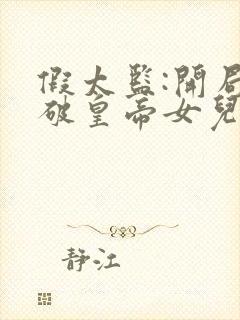 假太監:開局
破皇帝女兒
静江